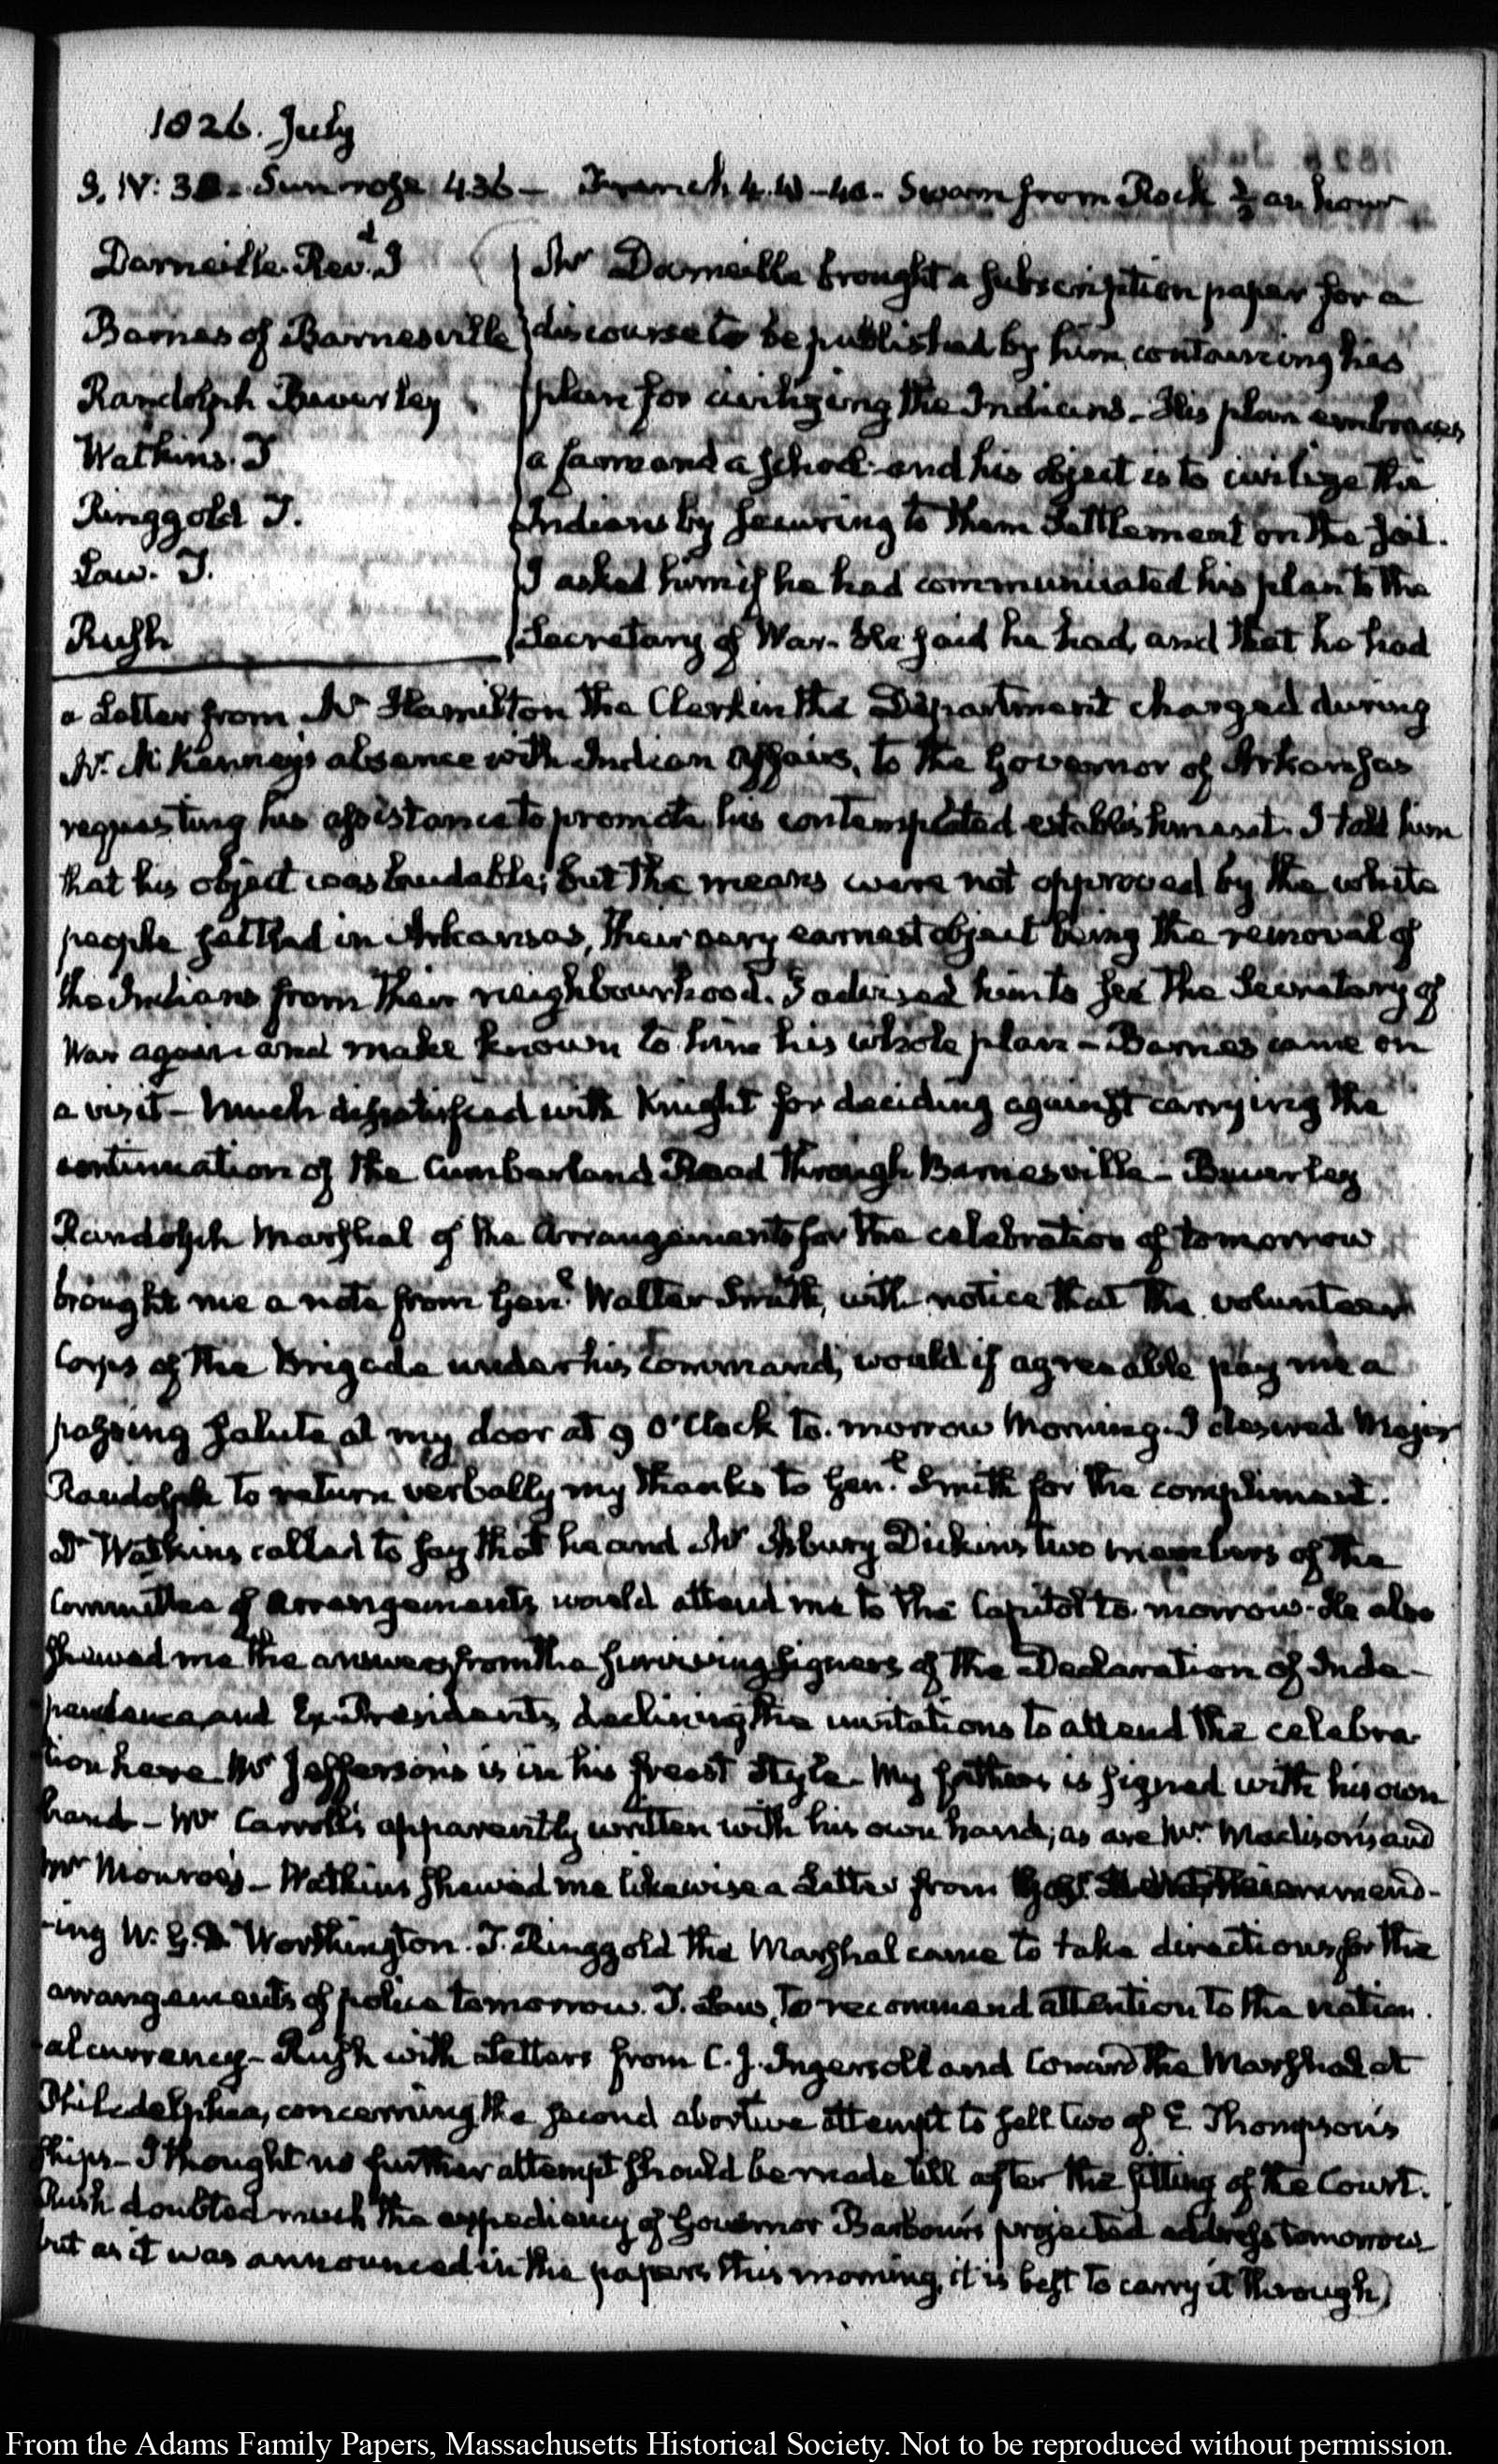 1826. July
3. IV: 30. Sun rose 4.36 — French 4.40 — Swam from Rock ½ an hour
Darneille. Rev.d I
Barnes of Barnesville
Randolph Beverley
Watkins. T
Ringgold T.
Law. T.
Rush
Mr Darneille brought a subscription paper for a
discourse to be published by him, containing his
plan for civilizing the Indians. His plan embraces
a farm and a school: and his object is to civilize the
Indians by securing to them Settlement on the soil.
I asked him if he had communicated his plan to the
Secretary of War. He said he had, and that he had
a Letter from Mr Hamilton the Clerk in the Department charged during
Mr McKenney's absence with Indian Affairs, to the Governor of Arkansas
requesting his assistance to promote his contemplated establishment. I told him
that his object was laudable; but the means were not approved by the white
people settled in Arkansas, their very earnest object being the removal of
the Indians from their neighbourhood. I advised him to see the Secretary of
War again and make known to him his whole plan — Barnes came on
a visit — Much dissatisfied with Knight for deciding against carrying the
continuation of the Cumberland Road through Barnesville — Beverley
Randolph Marshal of the Arrangements for the celebration of tomorrow
brought me a note from Genl. Walter Smith, with notice that the volunteer
Corps of the Brigade under his command, would if agreeable pay me a
passing salute at my door at 9 O'Clock to-morrow Morning. I desired Major
Randolph to return verbally my thanks to Genl. Smith for the compliment.
Dr Watkins called to say that he and Mr Asbury Dickins two members of the
Committee of Arrangements would attend me to the Capitol to-morrow. He also
shewed me the answers from the surviving signers of the Declaration of Inde-
pendence and Ex-Presidents, declining the invitations to attend the celebra-
tion here Mr Jefferson's is in his freest style. My father's is signed with his own
hand — Mr Carroll's apparently written with his own hand; as are Mr. Madison's and
Mr Monroe's — Watkins shewed me likewise a Letter from recommend-
-ing W. G. D. Worthington. T. Ringgold the Marshal came to take directions for the
arrangements of police tomorrow. T. Law, to recommend attention to the nation-
-al currency — Rush with Letters from C. J. Ingersoll and Conard the Marshal at
Philadelphia, concerning the second abortive attempt to sell two of E. Thompson's
ships — I thought no further attempt should be made till after the sitting of the Court.
Rush doubted much the expediency of Governor Barbour's projected address tomorrow
but as it was announced in the papers this morning, it is best to carry it through
From the Adams Family Papers, Massachusetts Historical Society. Not to be reproduced without permission.